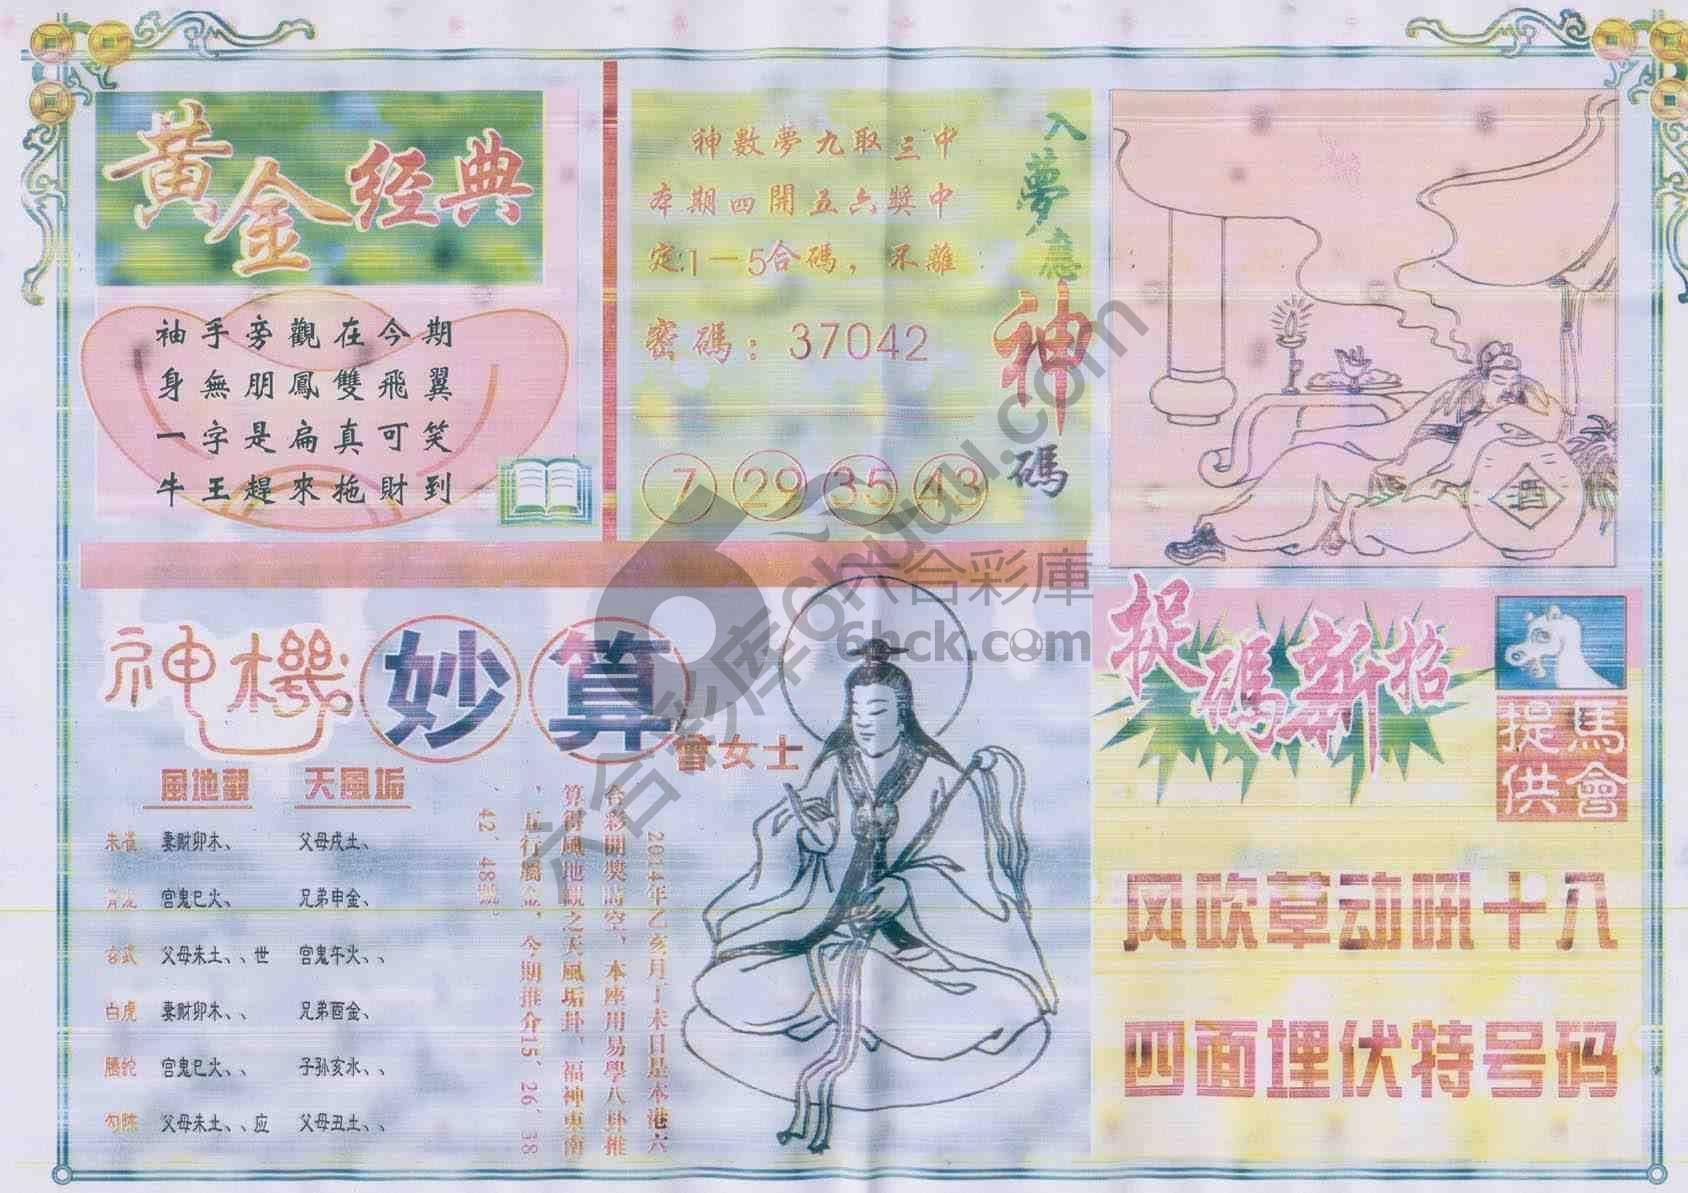 黃金经典
袖手旁觀在今期
身無朋鳳雙飛翼
一字是扁真可笑
牛王趕來拖財到
入夢應神碼
神數夢九取三中
本期四開五六獎中
定:1－5合碼，不離
密碼：37042
7 29 35 43
酒
神機妙算
曾女士
風地觀 天風垢
朱雀 妻財卯木、 父母戌土、
青龙 官鬼巳火、 兄弟申金、
玄武 父母未土、、世 官鬼午火、、
白虎 妻財卯木、、 兄弟酉金、
騰蛇 官鬼巳火、、 子孙亥水、、
勾陈 父母未土、、应 父母丑土、、
2014年乙亥月丁未日是本港六
合彩開獎時空，本座用易學八卦推
算得風地觀之天風垢卦，福神東南
，五行屬金，今期推介15、26、38
、42、48號。
捉碼新招
馬會提供
风吹草动吼十八
四面埋伏特号码
六合彩库 6hcku.com
六合彩庫
6hck.com